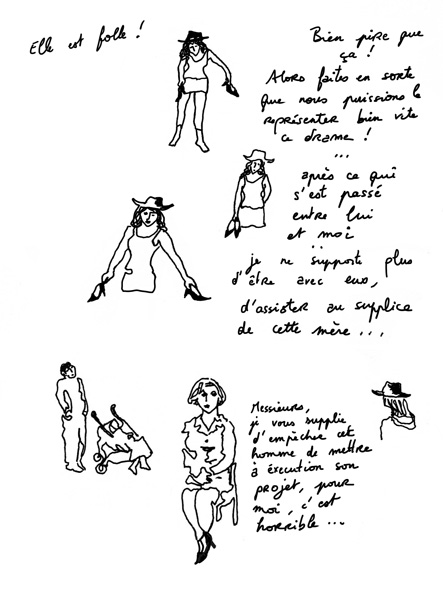 Elle est folle !
Bien pire que
ça !
Alors faites en sorte
que nous puissions le
représenter bien vite
ce drame !
...
après ce qui
s'est passé
entre lui
et moi
...
je ne supporte plus
d'être avec eux,
d'assister au supplice
de cette mère...
Messieurs,
je vous supplie
d'empêcher cet
homme de mettre
à éxécution son
projet, pour
moi, c'est
horrible...